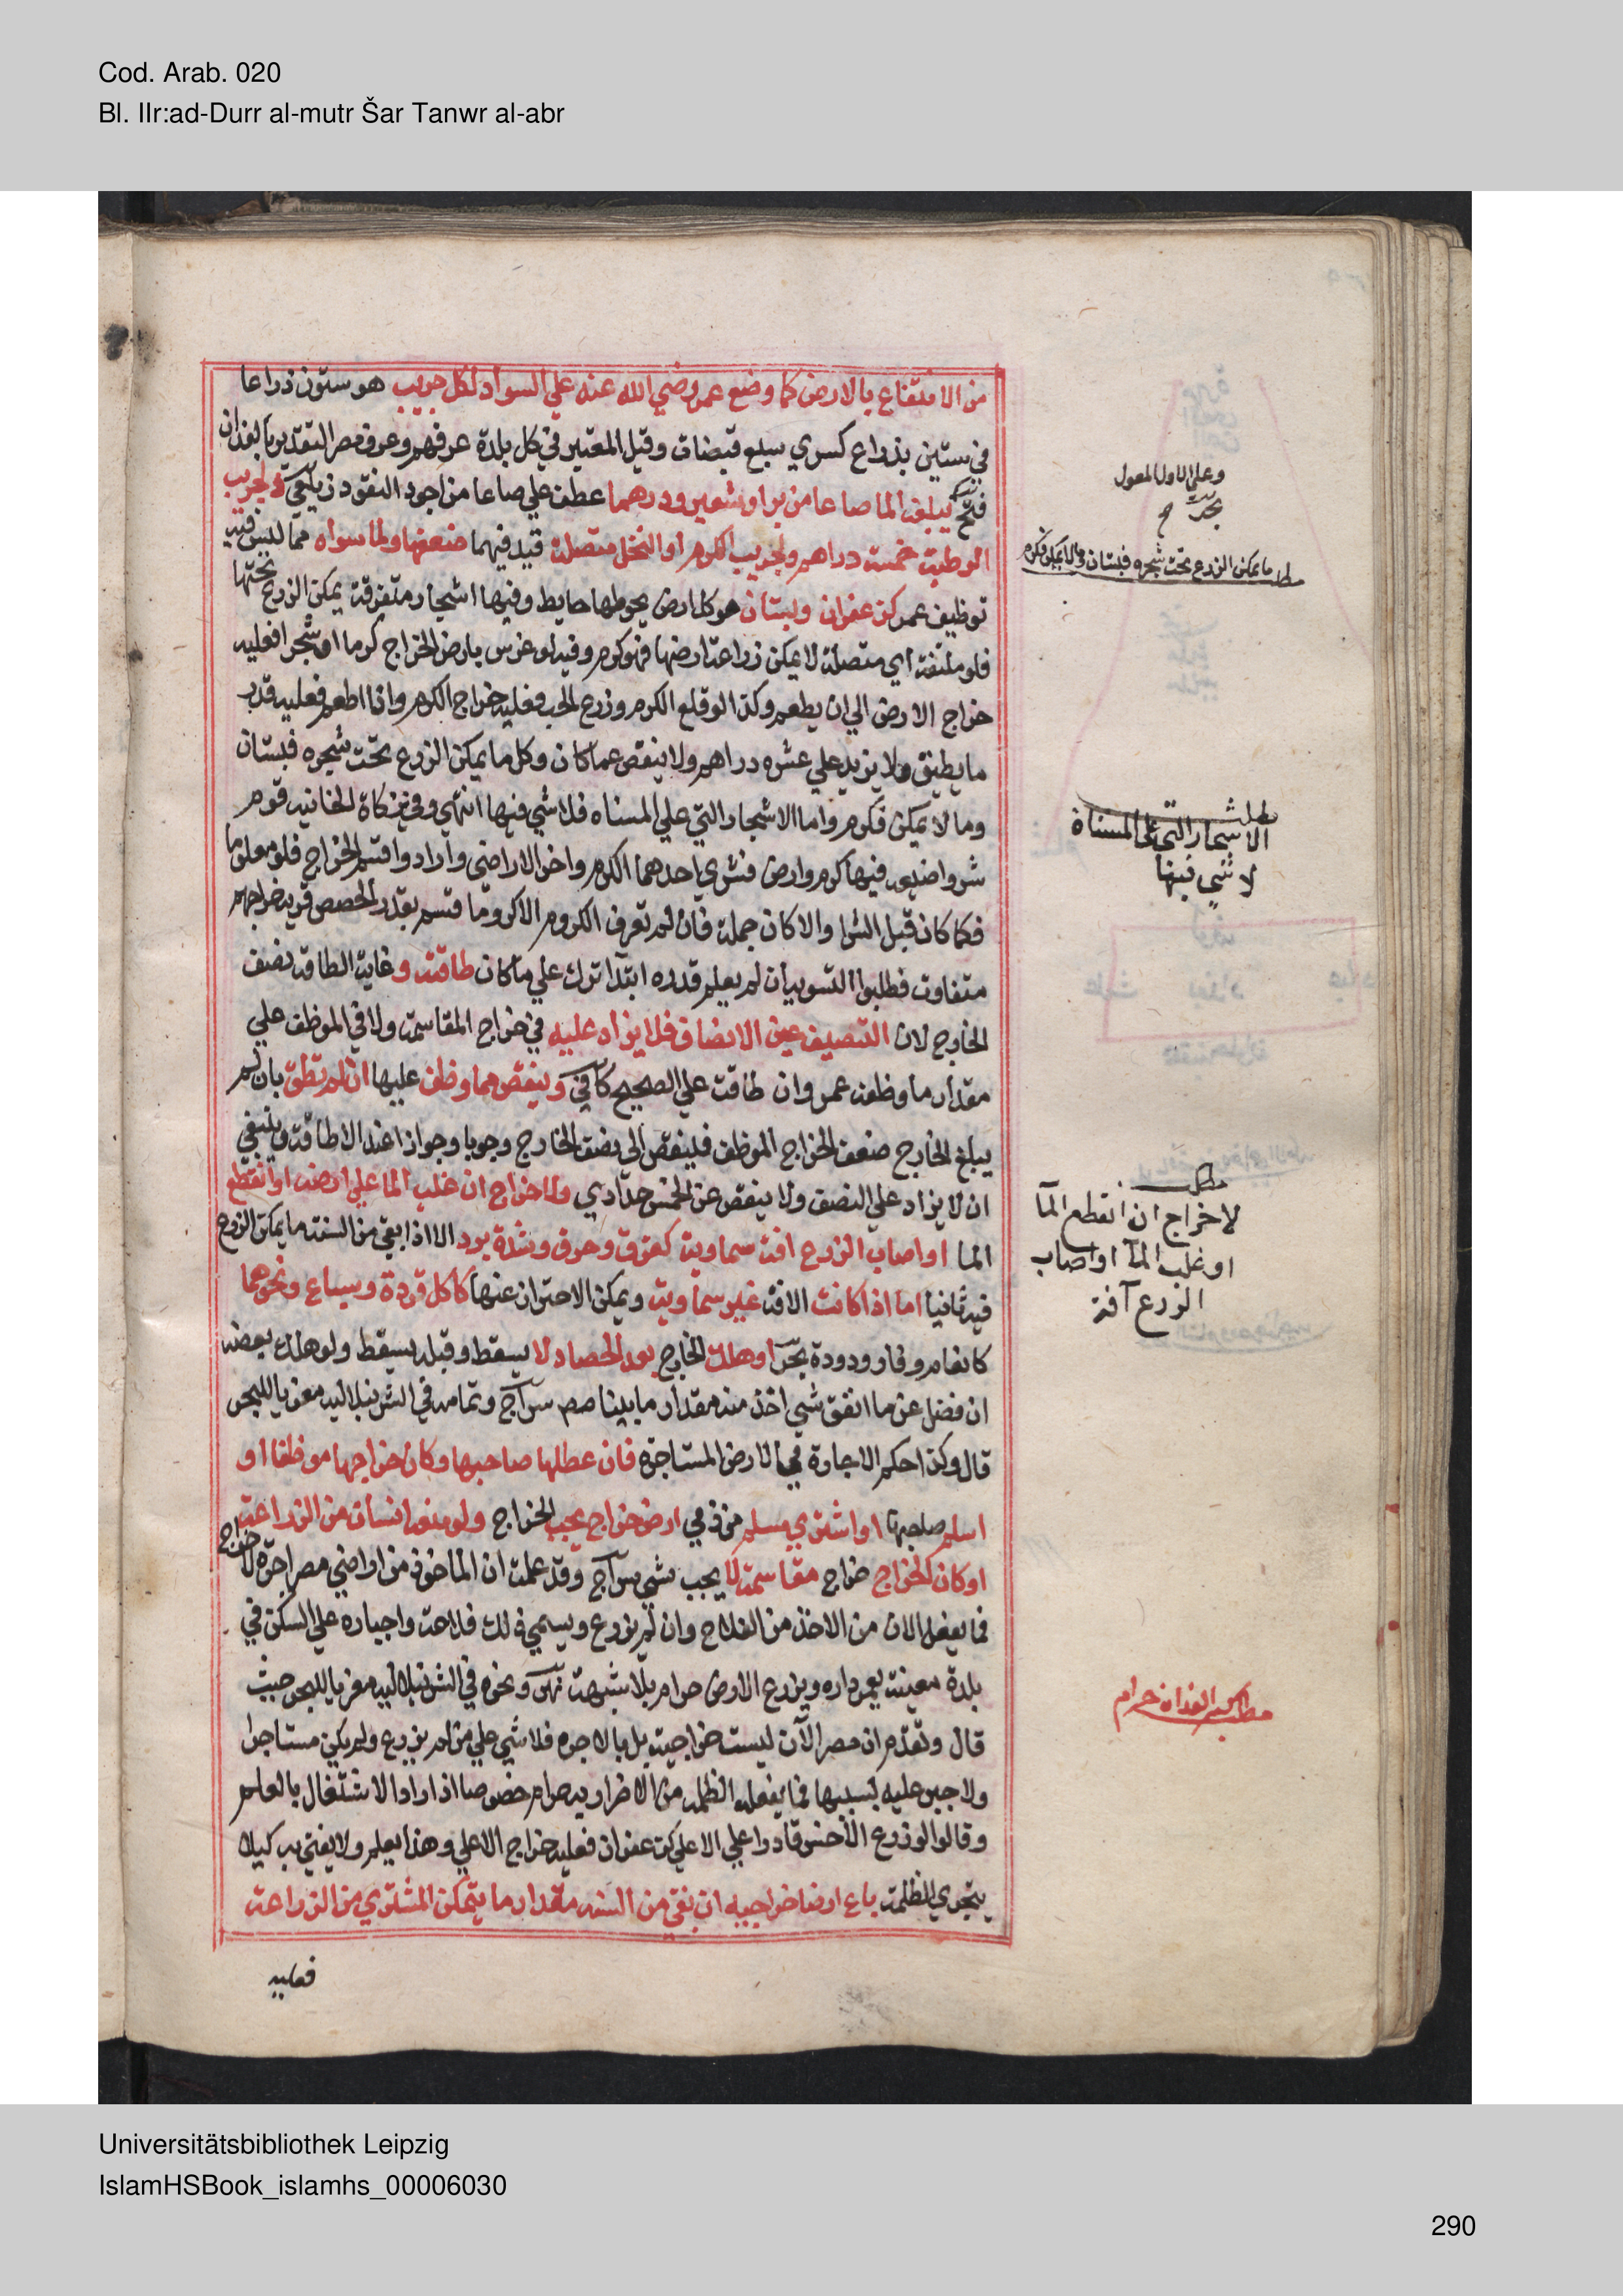 Cod. Arab. 020
Bl. IIr:ad-Durr al-mutr Šar Tanwr al-abr
من الانتفاع بالارض كما وضع عمر رضي الله عنه علي السواد لكل جريب هو ستون ذراعا
في ستين بذراع كسري سبع قبضات وقيل المعتبر في كل بلدة عرفهم وعرف مصر التقدير بالفدان
فتح يبلغه الما صاعا من بر او شعير ودرهما عطف علي صاعا من اجود النقود زيلعي ولجريب
الرطبة خمسة دراهم ولجريب الكرم او النخل متصلة قيد فيهما ضعفها ولما سواه مما ليس فيه
توظيف عمر كزعفران وبستان هو كل ارض يحوطها حايط وفيها اشجار متفرقة يمكن الزرع تحتها
فلو ملتفة اي متصلة لا يمكن زراعة ارضها فهو كرم وفيه لو غرس بارض الخراج كرما او شجرا فعليه
خراج الارض الي ان يطعم وكذا لو قلع الكرم وزرع الحب فعليه خراج الكرم واذا اطعم فعليه قدر
ما يطيق ولا يزيد علي عشره دراهم ولا ينقص عما كان وكل ما يمكن الزرع تحت شجره فبستان
وما لا يمكن فكرم واما الاشجار التي علي المسناه فلا شي فيها انتهي وفي زكاة الخانيه قوم
شروا ضيعه فيها كرم وارض فشري احدهما الكرم واخر الاراضي وارادوا قسم الخراج فلو معلوما
فكما كان قبل الشرا والا كان جملة فان لم تعرف الكروم الا كروما قسم بقدر الحصص قريه خراجهم
متفاوت فطلبوا التسويه ان لم يعلم قدره ابتدآ ترك علي ما كان طاقته وغاية الطاقه نصف
الخارج لان التنصيف عين الانصاف فلا يزاد عليه في خراج المقاسمة ولا في الموظف علي
مقدار ما وظفه عمر وان طاقت علي الصحيح كافي وينقص مما وظف عليها ان لم تطق بان لم
يبلغ الخارج ضعف الخراج الموظف فلينقص الي نصف الخارج وجوبا وجوازا عند الاطاقة وينبغي
ان لا يزاد علي النصف ولا ينقص عن الخمس حدادي ولا خراج ان غلب الما علي ارضه او انقطع
الما او اصاب الزرع افة سماوية كغرق وحرق وشدة برد الا اذا بقي من السنة ما يمكن الزرع
فيه ثانيا اما اذا كانت الافة غير سماوية ويمكن الاحتراز عنها كاكل قردة وسباع ونحوهما
كانعام وفار ودودة بحر او هلك الخارج بعد الحصاد لا يسقط وقبله يسقط ولو هلك بعضه
ان فضل عن ما انفق شي اخذ منه مقدار ما بينا مصم سراج وتمامه في الشرنبلاليه معزيا للبحر
قال وكذا حكم الاجارة في الارض المستاجرة فان عطلها صاحبها وكان خراجها موظفا او
اسلم صاحبها او اشتري مسلم من ذمي ارض خراج يجب الخراج ولو منعه انسان من الزراعة
او كان الخراج خراج مقاسمة لا يجب شي سراج وقد علمت ان الماخوذ من اراضي مصر اجرة لا خراج
فما يفعل الان من الاخذ من الفلاح وان لم يزرع ويسمي ذلك فلاحة واجباره علي السكن في
بلدة معينة يعمر داره ويزرع الارض حرام بلا شبهة نهر ونحوه في الشرنبلاليه معزيا للبحر حيث
قال وتقدم ان مصر الآن ليست خراجية بل بالاجره فلا شي علي من لم يزرع ولم يكن مستاجرا
ولا جبر عليه بسببها فما يفعله الظلمه من الاضرار به حرام خصوصا اذا اراد الاشتغال بالعلم
وقالوا لو زرع الاخس قادرا علي الاعلي كزعفران فعليه خراج الاعلي وهذا يعلم ولا يفتي به كيلا
يتجري الظلمة باع ارضا خراجيه ان بقي من السنه مقدار ما يتمكن المشتري من الزراعة
فعليه
وعلي الاول المعول
بحر
مط ما يمكن الزرع تحت شجره فبستان وما لا يمكن فكرم
مطلب
الاشجار التي علي المسناة
لا شي فيها
مطلب
لا خراج ان انقطع المآ
او غلب المآ او اصاب
الزرع آفة
حرام
Universitätsbibliothek Leipzig
IslamHSBook_islamhs_00006030
290